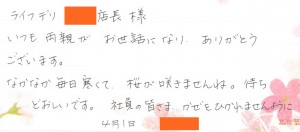 ライフデリ 店長 様
いつも両親が お世話になり ありがとう
ございます。
なかなか毎日寒くて、桜が咲きませんね。待ち
どおしいです。社員の皆さま カゼをひかれませんように
4月1日